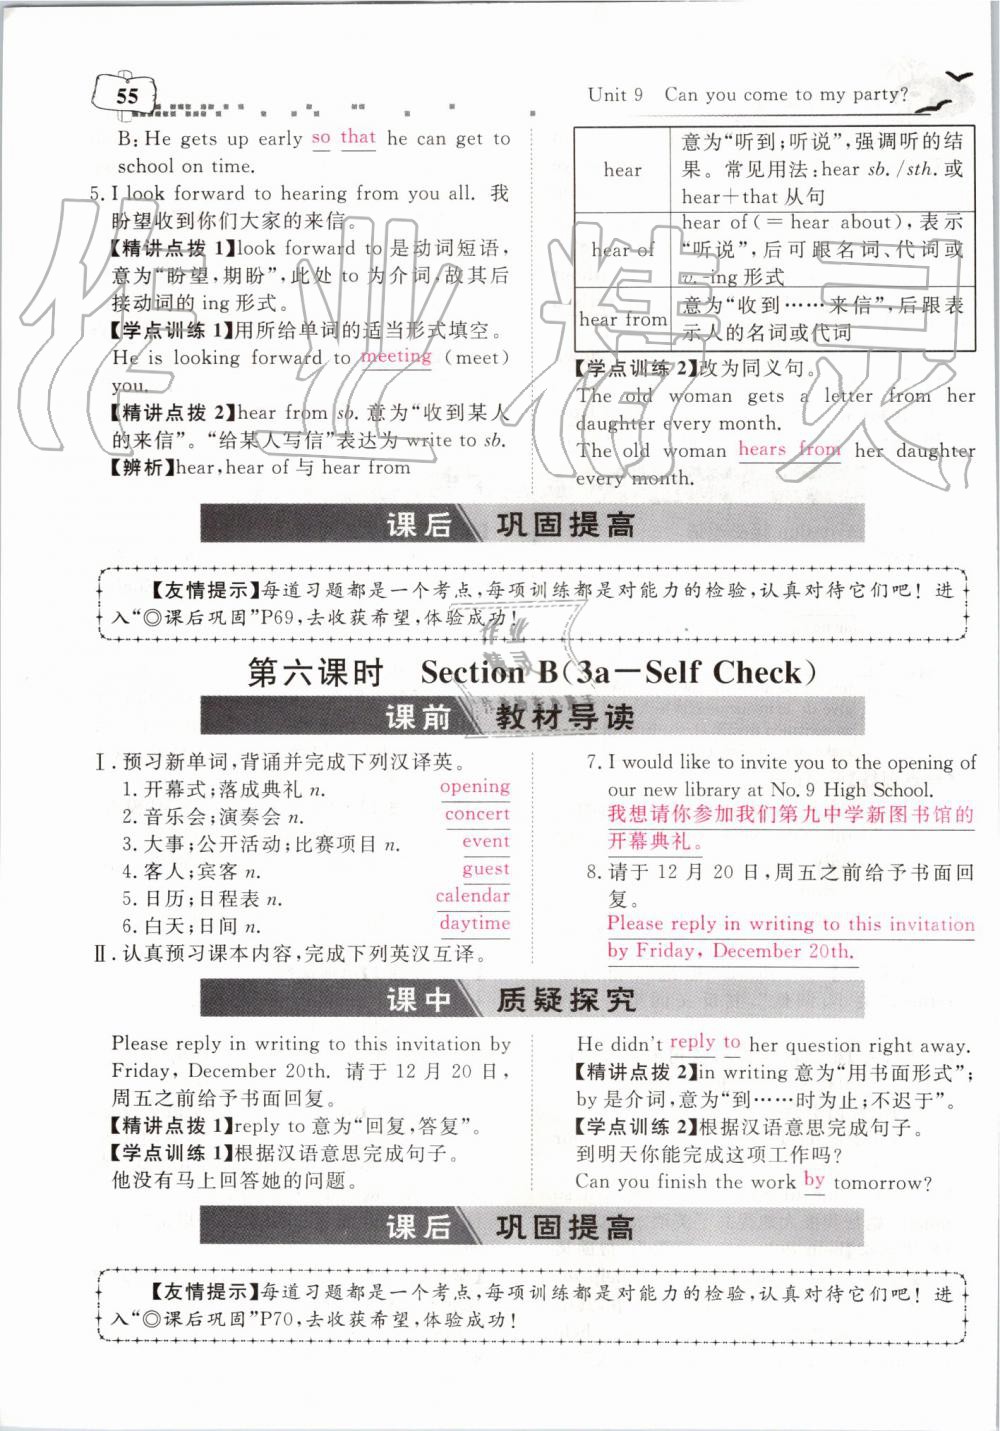 55
Unit 9 Can you come to my party?
B: He gets up early so that he can get to
school on time.
5. I look forward to hearing from you all. 我
盼望收到你们大家的来信。
【精讲点拨 1】look forward to 是动词短语，
意为“盼望，期盼”，此处 to 为介词，故其后
接动词的 ing 形式。
【学点训练 1】用所给单词的适当形式填空。
He is looking forward to meeting (meet)
you.
【精讲点拨 2】hear from sb. 意为“收到某人
的来信”。“给某人写信”表达为 write to sb.
【辨析】hear, hear of 与 hear from
hear
意为“听到；听说”，强调听的结
果。常见用法：hear sb. /sth. 或
hear＋that 从句
hear of
hear of(＝hear about)，表示
“听说”，后可跟名词、代词或
v.-ing 形式
hear from
意为“收到……来信”，后跟表
示人的名词或代词
【学点训练 2】改为同义句。
The old woman gets a letter from her
daughter every month.
The old woman hears from her daughter
every month.
课后 巩固提高
【友情提示】每道习题都是一个考点，每项训练都是对能力的检验，认真对待它们吧！进
入“◎课后巩固”P69，去收获希望，体验成功！
第六课时 Section B(3a－Self Check)
课前 教材导读
Ⅰ. 预习新单词，背诵并完成下列汉译英。
1. 开幕式；落成典礼 n. opening
2. 音乐会；演奏会 n. concert
3. 大事；公开活动；比赛项目 n. event
4. 客人；宾客 n. guest
5. 日历；日程表 n. calendar
6. 白天；日间 n. daytime
Ⅱ. 认真预习课本内容，完成下列英汉互译。
7. I would like to invite you to the opening of
our new library at No. 9 High School.
我想请你参加我们第九中学新图书馆的
开幕典礼。
8. 请于 12 月 20 日，周五之前给予书面回
复。
Please reply in writing to this invitation
by Friday, December 20th.
课中 质疑探究
Please reply in writing to this invitation by
Friday, December 20th. 请于 12 月 20 日，
周五之前给予书面回复。
【精讲点拨 1】reply to 意为“回复，答复”。
【学点训练 1】根据汉语意思完成句子。
他没有马上回答她的问题。
He didn't reply to her question right away.
【精讲点拨 2】in writing 意为“用书面形式”；
by 是介词，意为“到……时为止；不迟于”。
【学点训练 2】根据汉语意思完成句子。
到明天你能完成这项工作吗？
Can you finish the work by tomorrow?
课后 巩固提高
【友情提示】每道习题都是一个考点，每项训练都是对能力的检验，认真对待它们吧！进
入“◎课后巩固”P70，去收获希望，体验成功！
作业精灵